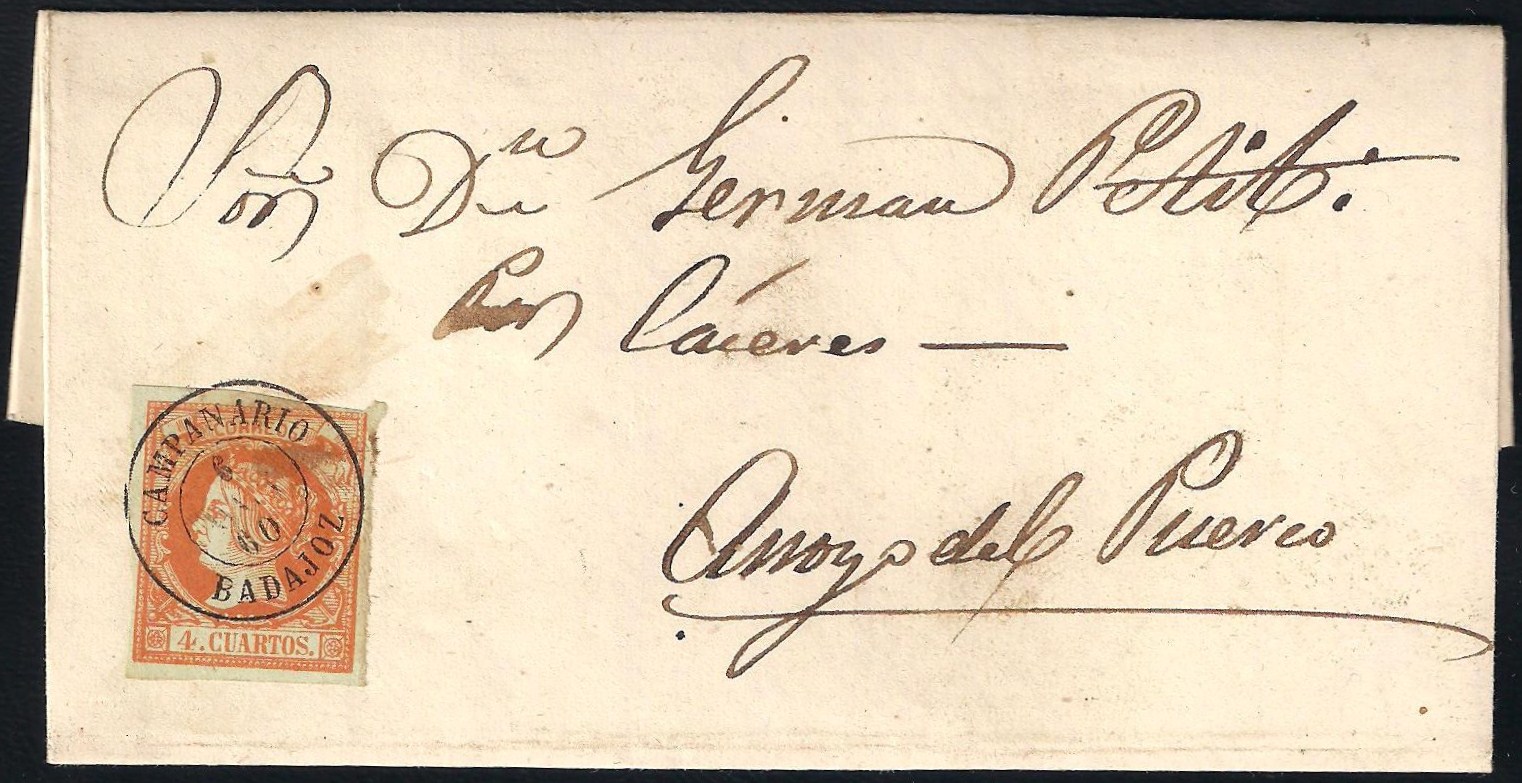 Sor Dn German Petit.
Por Cáceres —
Arroyo del Puerco
CAMPANARIO
6
60
BADAJOZ
4. CUARTOS.